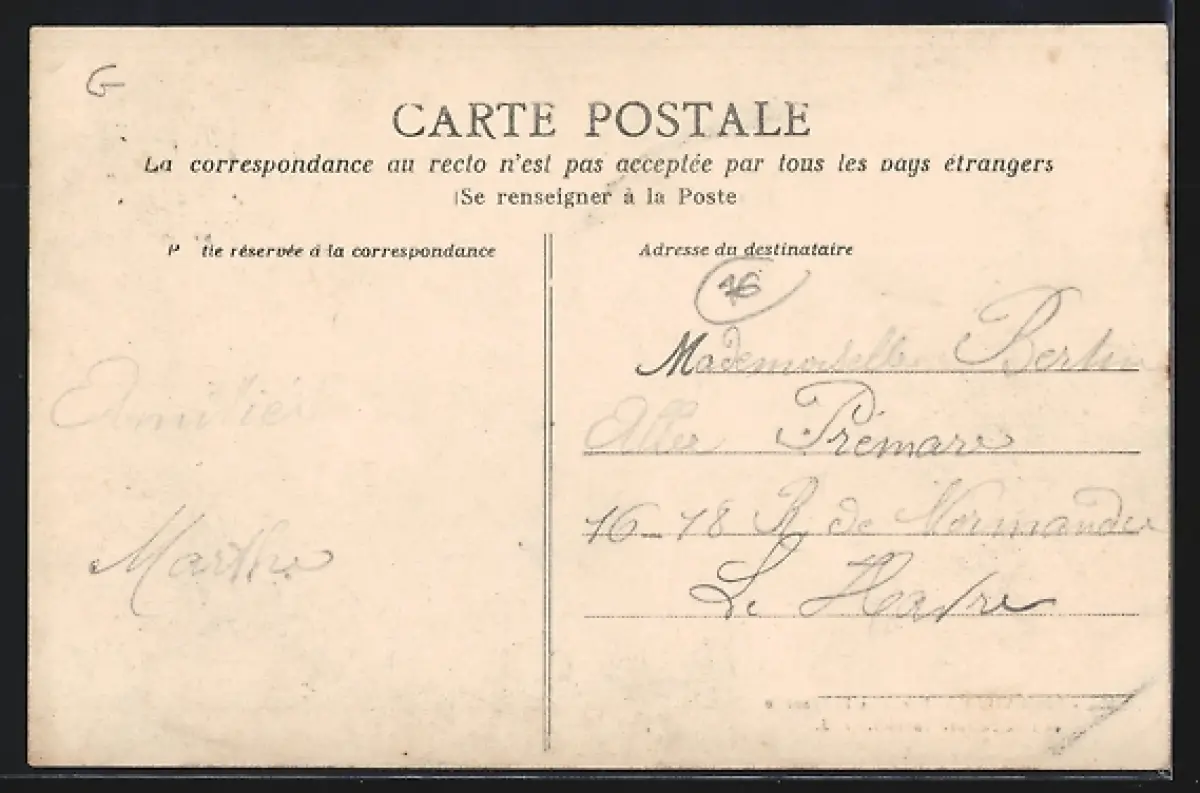 G
CARTE POSTALE
La correspondance au recto n'est pas acceptée par tous les pays étrangers
(Se renseigner à la Poste
P tie réservée à la correspondance
Adresse du destinataire
76
Amitiés
Marthe
Mademoiselle Bertin
Prémare
16-18 R de Normandie
Le Havre